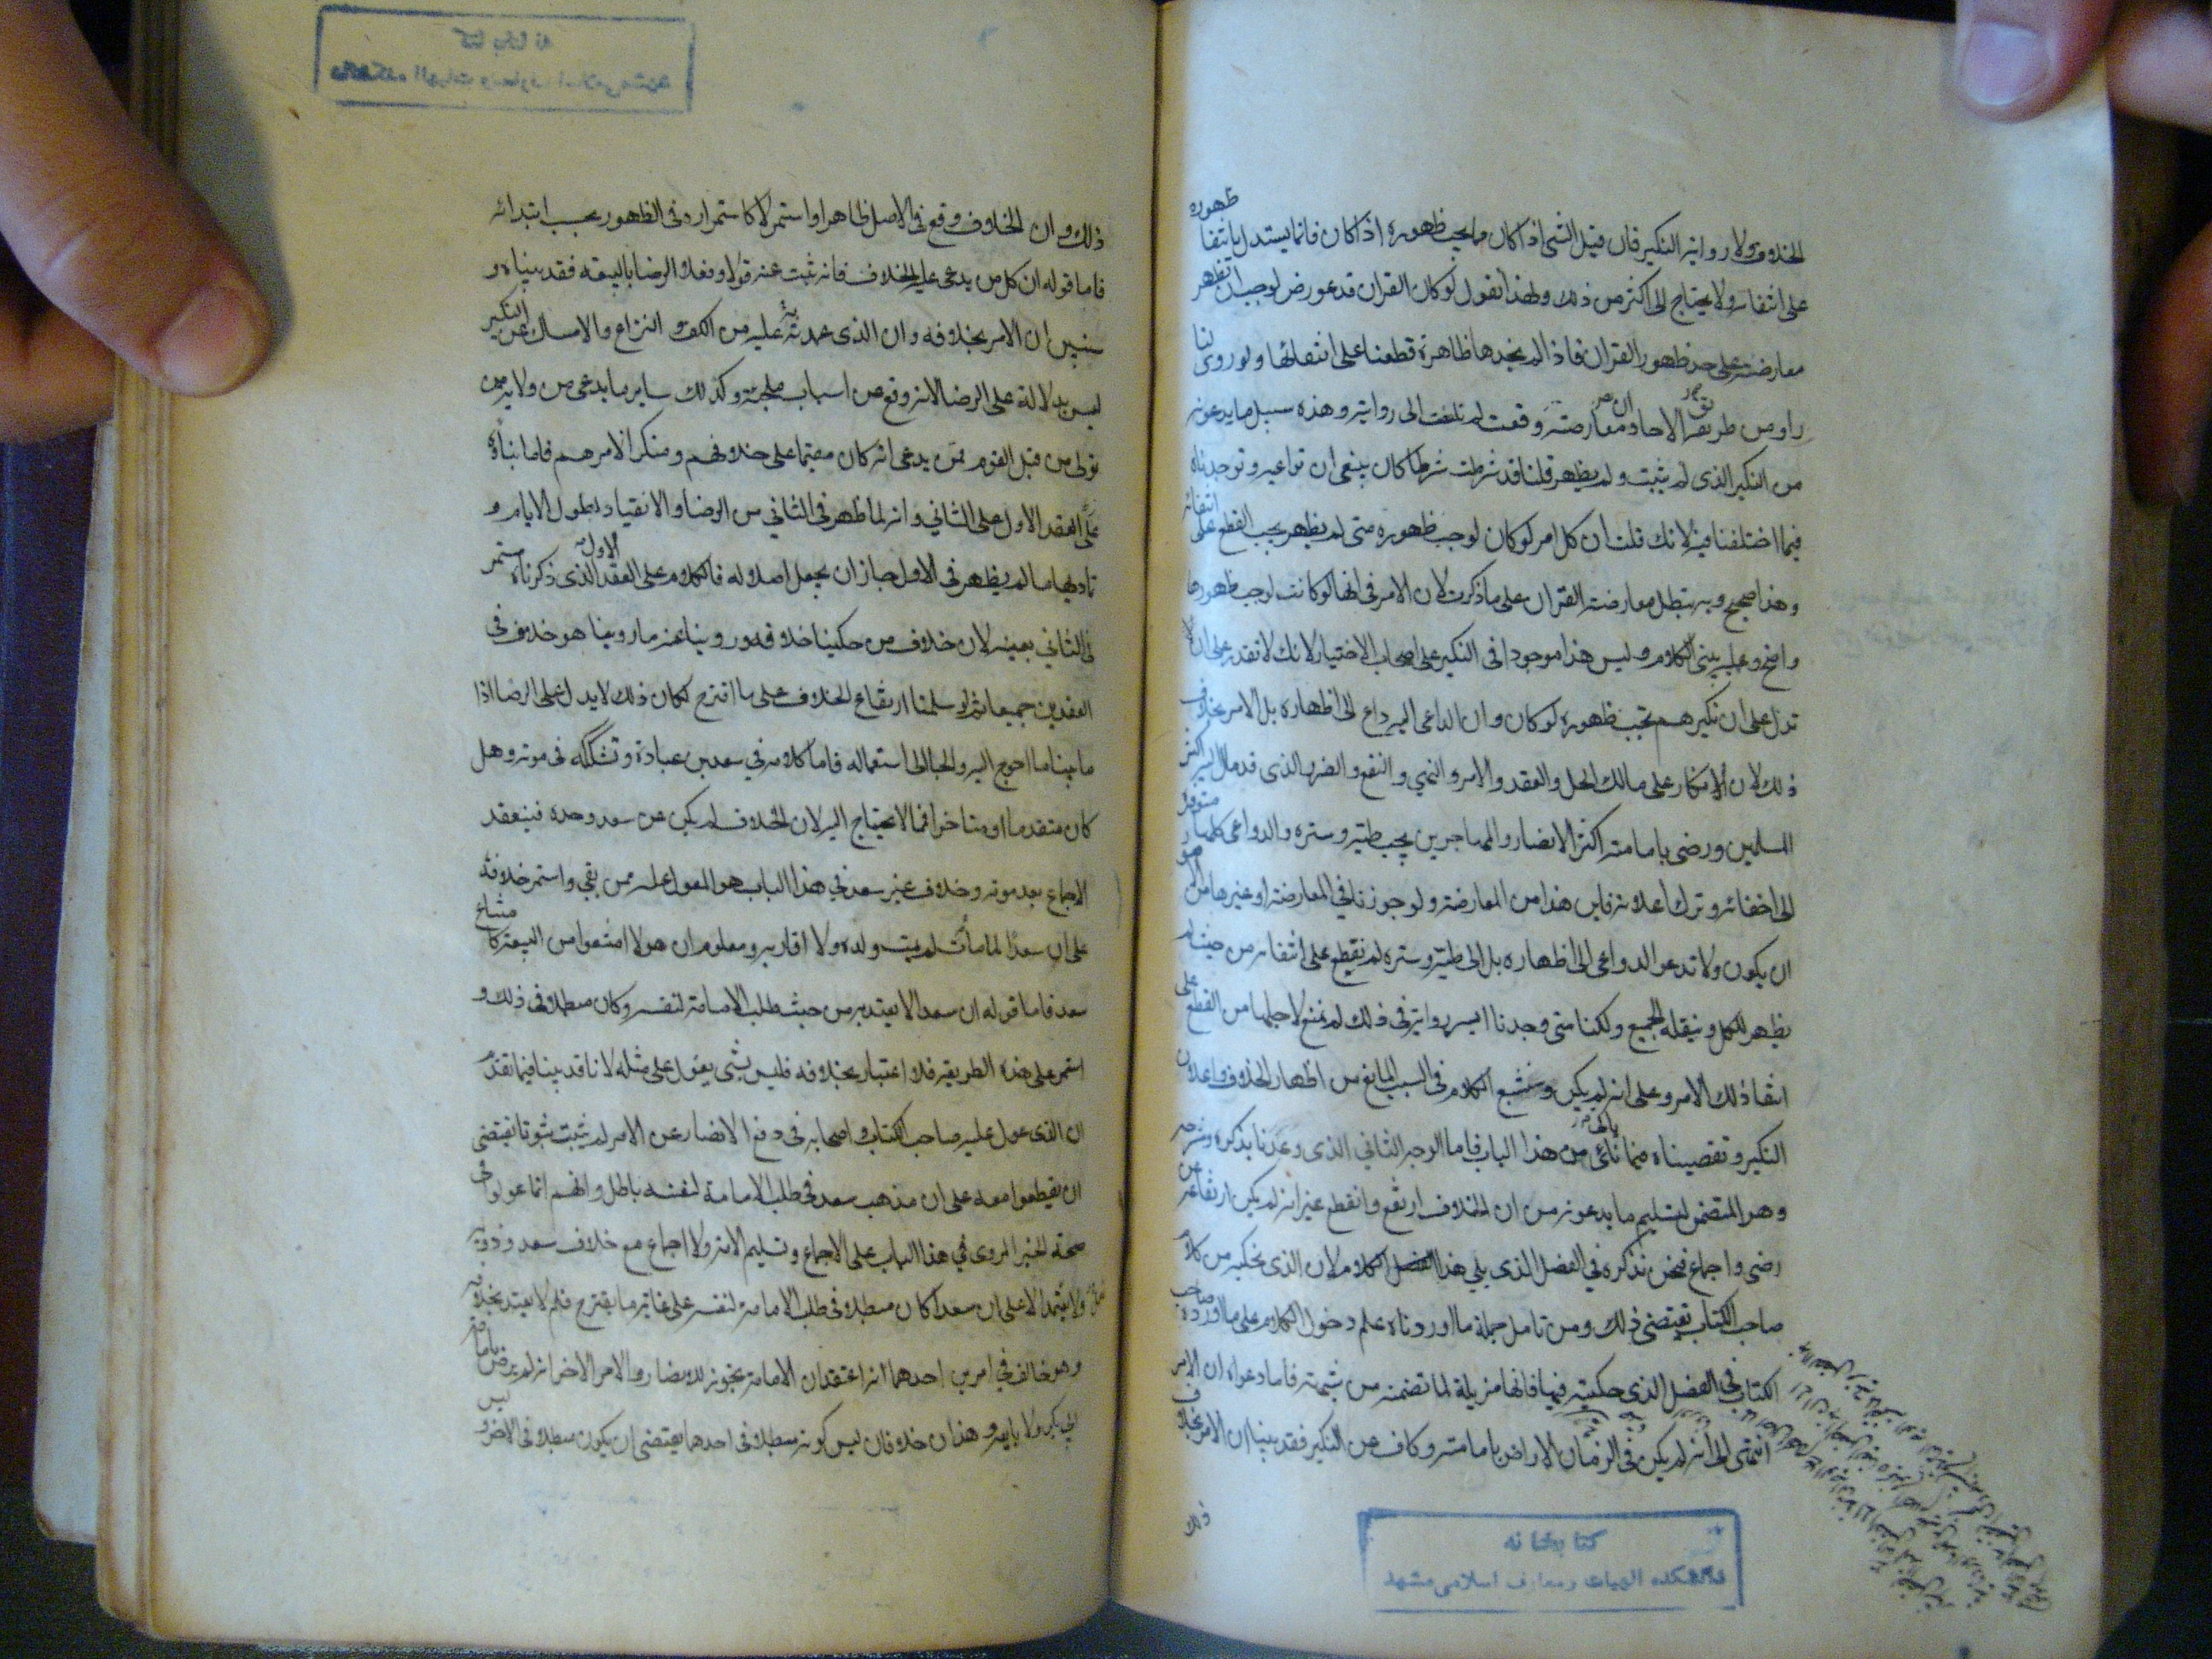 الخلاف ولا رواية النكير فان قيل الشى اذا كان مما يجب ظهوره اذا كان فانما يستدل بانتفا ظهوره
على انتفائه ولا يحتاج الى اكثر من ذلك ولهذا نقول لو كان القران قد عورض لوجب ان تظهر
معارضته على حد ظهور القران فاذا لم نجدها ظاهرة قطعنا على انتفائها ولو روى لنا
راو من طريق الاحاد ان معارضته وقعت لم نلتفت الى روايته وهذه سبيل ما يدعونه
من النكير الذى لم يثبت ولم يظهر قلنا قد شرطت شرطا كان ينبغى ان تراعيه وتوجدناه
فيما اختلفنا فيه لانك قلت ان كل امر لو كان لوجب ظهوره متى لم يظهر يجب القطع على انتفائه
وهذا صحيح وبه تبطل معارضة القران على ما ذكرت لان الامر فى انها لو كانت لوجب ظهورها
واضح وعليه يبنى الكلام وليس هذا موجودا فى النكير على اصحاب الاختيار لانك لا تقدر على ان
تدل على ان نكيرهم يجب ظهوره لو كان وان الداعى اليه داع الى اظهاره بل الامر بخلاف
ذلك لان الانكار على مالك الحل والعقد والامر والنهي والنفع والضر الذى قد مال اليه اكثر
المسلمين ورضى بامامته اكثر الانصار والمهاجرين يجب طيه وستره والدواعى كلها متوفرة
الى اخفائه وترك اعلانه فاين هذا من المعارضة ولو جوزنا في المعارضة او غيرها من الامور
ان يكون ولا تدعو الدواعى الى اظهاره بل الى طيه وستره لم نقطع على انتفائه من حيث لم
يظهر للكل وينقله الجميع ولكنا متى وجدنا ايسر رواية فى ذلك لم نمنع لاجلها من القطع على
انتفا ذلك الامر وعلى انه لم يكن وسنشبع الكلام فى السبب المانع من اظهار الخلاف واعلان
النكير وتقصيناه فيما ناتى من هذا الباب فاما الوجه الثاني الذى وعدنا بذكره وشرحه
وهو المتضمن لتسليم ما يدعونه من ان الخلاف ارتفع وانقطع غير انه لم يكن ارتفاعه عن
رضى واجماع فنحن نذكره في الفصل الذى يلي هذا الفصل الكلام لان الذى نحكيه من كلام
صاحب الكتاب يقتضى ذلك ومن تامل جملة ما اوردناه علم دخول الكلام على ما اورده صاحب
الكتاب في الفصل الذى حكيته فيها فانها مزيلة لما تضمنه من شبهته فاما دعواه ان الامر
انتهى الى انه لم يكن فى الزمان الا راض بامامته وكاف عن النكير فقد بينا ان الامر بخلاف
ذلك
كتابخانه
دانشكده الهيات ومعارف اسلامى مشهد
ذلك وان الخلاف وقع فى الاصل ظاهرا واستمر لا كاستمراره فى الظهور بحسب ابتدائه
فاما قوله ان كل من يدعى عليه الخلاف فانه ثبت عنه قولا وفعلا الرضا بالبيعة فقد بيناه و
سنبين ان الامر بخلافه وان الذى عمدته عليه من الكف و النزاع والامساك عن النكير
ليس بدلالة على الرضا لانه وقع عن اسباب ملجئة وكذلك ساير ما يدعى من ولاية من
تولى من قبل القوم ممن يدعى انه كان مقيما على خلافهم ومنكرا لامرهم فاما بناه
على العقد الاول على الثاني وانه لما ظهر فى الثاني من الرضا والانقياد لطول الايام و
تماديها ما لم يظهر فى الاول جاز ان يجعل اصلا له فالكلام على العقد الاول الذى ذكرناه مستمر
فى الثاني بعينه لان خلاف من حكينا خلافه وروينا عنه ما روينا هو خلاف فى
العقدين جميعا ثم لو سلمنا ارتفاع الخلاف على ما اقترح لكان ذلك لا يدل على الرضا اذا
ما بينا ما احوج اليه والجا الى استعماله فاما كلامه في سعد بن عبادة وتشككه فى موته وهل
كان متقدما او متاخرا فمما لا يحتاج اليه لان الخلاف لم يكن من سعد وحده فينعقد
الاجماع بعد موته وخلاف غير سعد في هذا الباب هو المعول عليه ممن بقي واستمر خلافه
على ان سعدا لما مات لم يبت ولده ولا اقاربه ومعلوم ان هولا امتنعوا من البيعة كامتناع
سعد فاما قوله ان سعدا لا يعتد به من حيث طلب الامامة لنفسه وكان مبطلا فى ذلك و
استمر على هذه الطريقة فلا اعتبار بخلافه فليس بشى يعول على مثله لانا قد بينا فيما تقدم
ان الذى عول عليه صاحب الكتاب واصحابه فى دفع الانصار عن الامر لم يثبت ثبوتا يقتضى
ان يقطعوا معه على ان مذهب سعد فى طلب الامامة لنفسه باطل وانهم انما عولوا فى
صحة الخبر المروى في هذا الباب على الاجماع وتسليم الامة ولا اجماع مع خلاف سعد وذويه
ولا يثمد الا على ان سعدا كان مبطلا فى طلب الامامة لنفسه على غاية ما يقترح فلم لا يعتد بخلافه
وهو خالف في امرين احدهما انه اعتقد ان الامامة تجوز للانصار والامر الاخر انه لم يرض بامامة
ابي بكر ولا بايعه وهذان خلافان ليس كونه مبطلا فى احدهما يقتضى ان يكون مبطلا فى الاخر و ليس